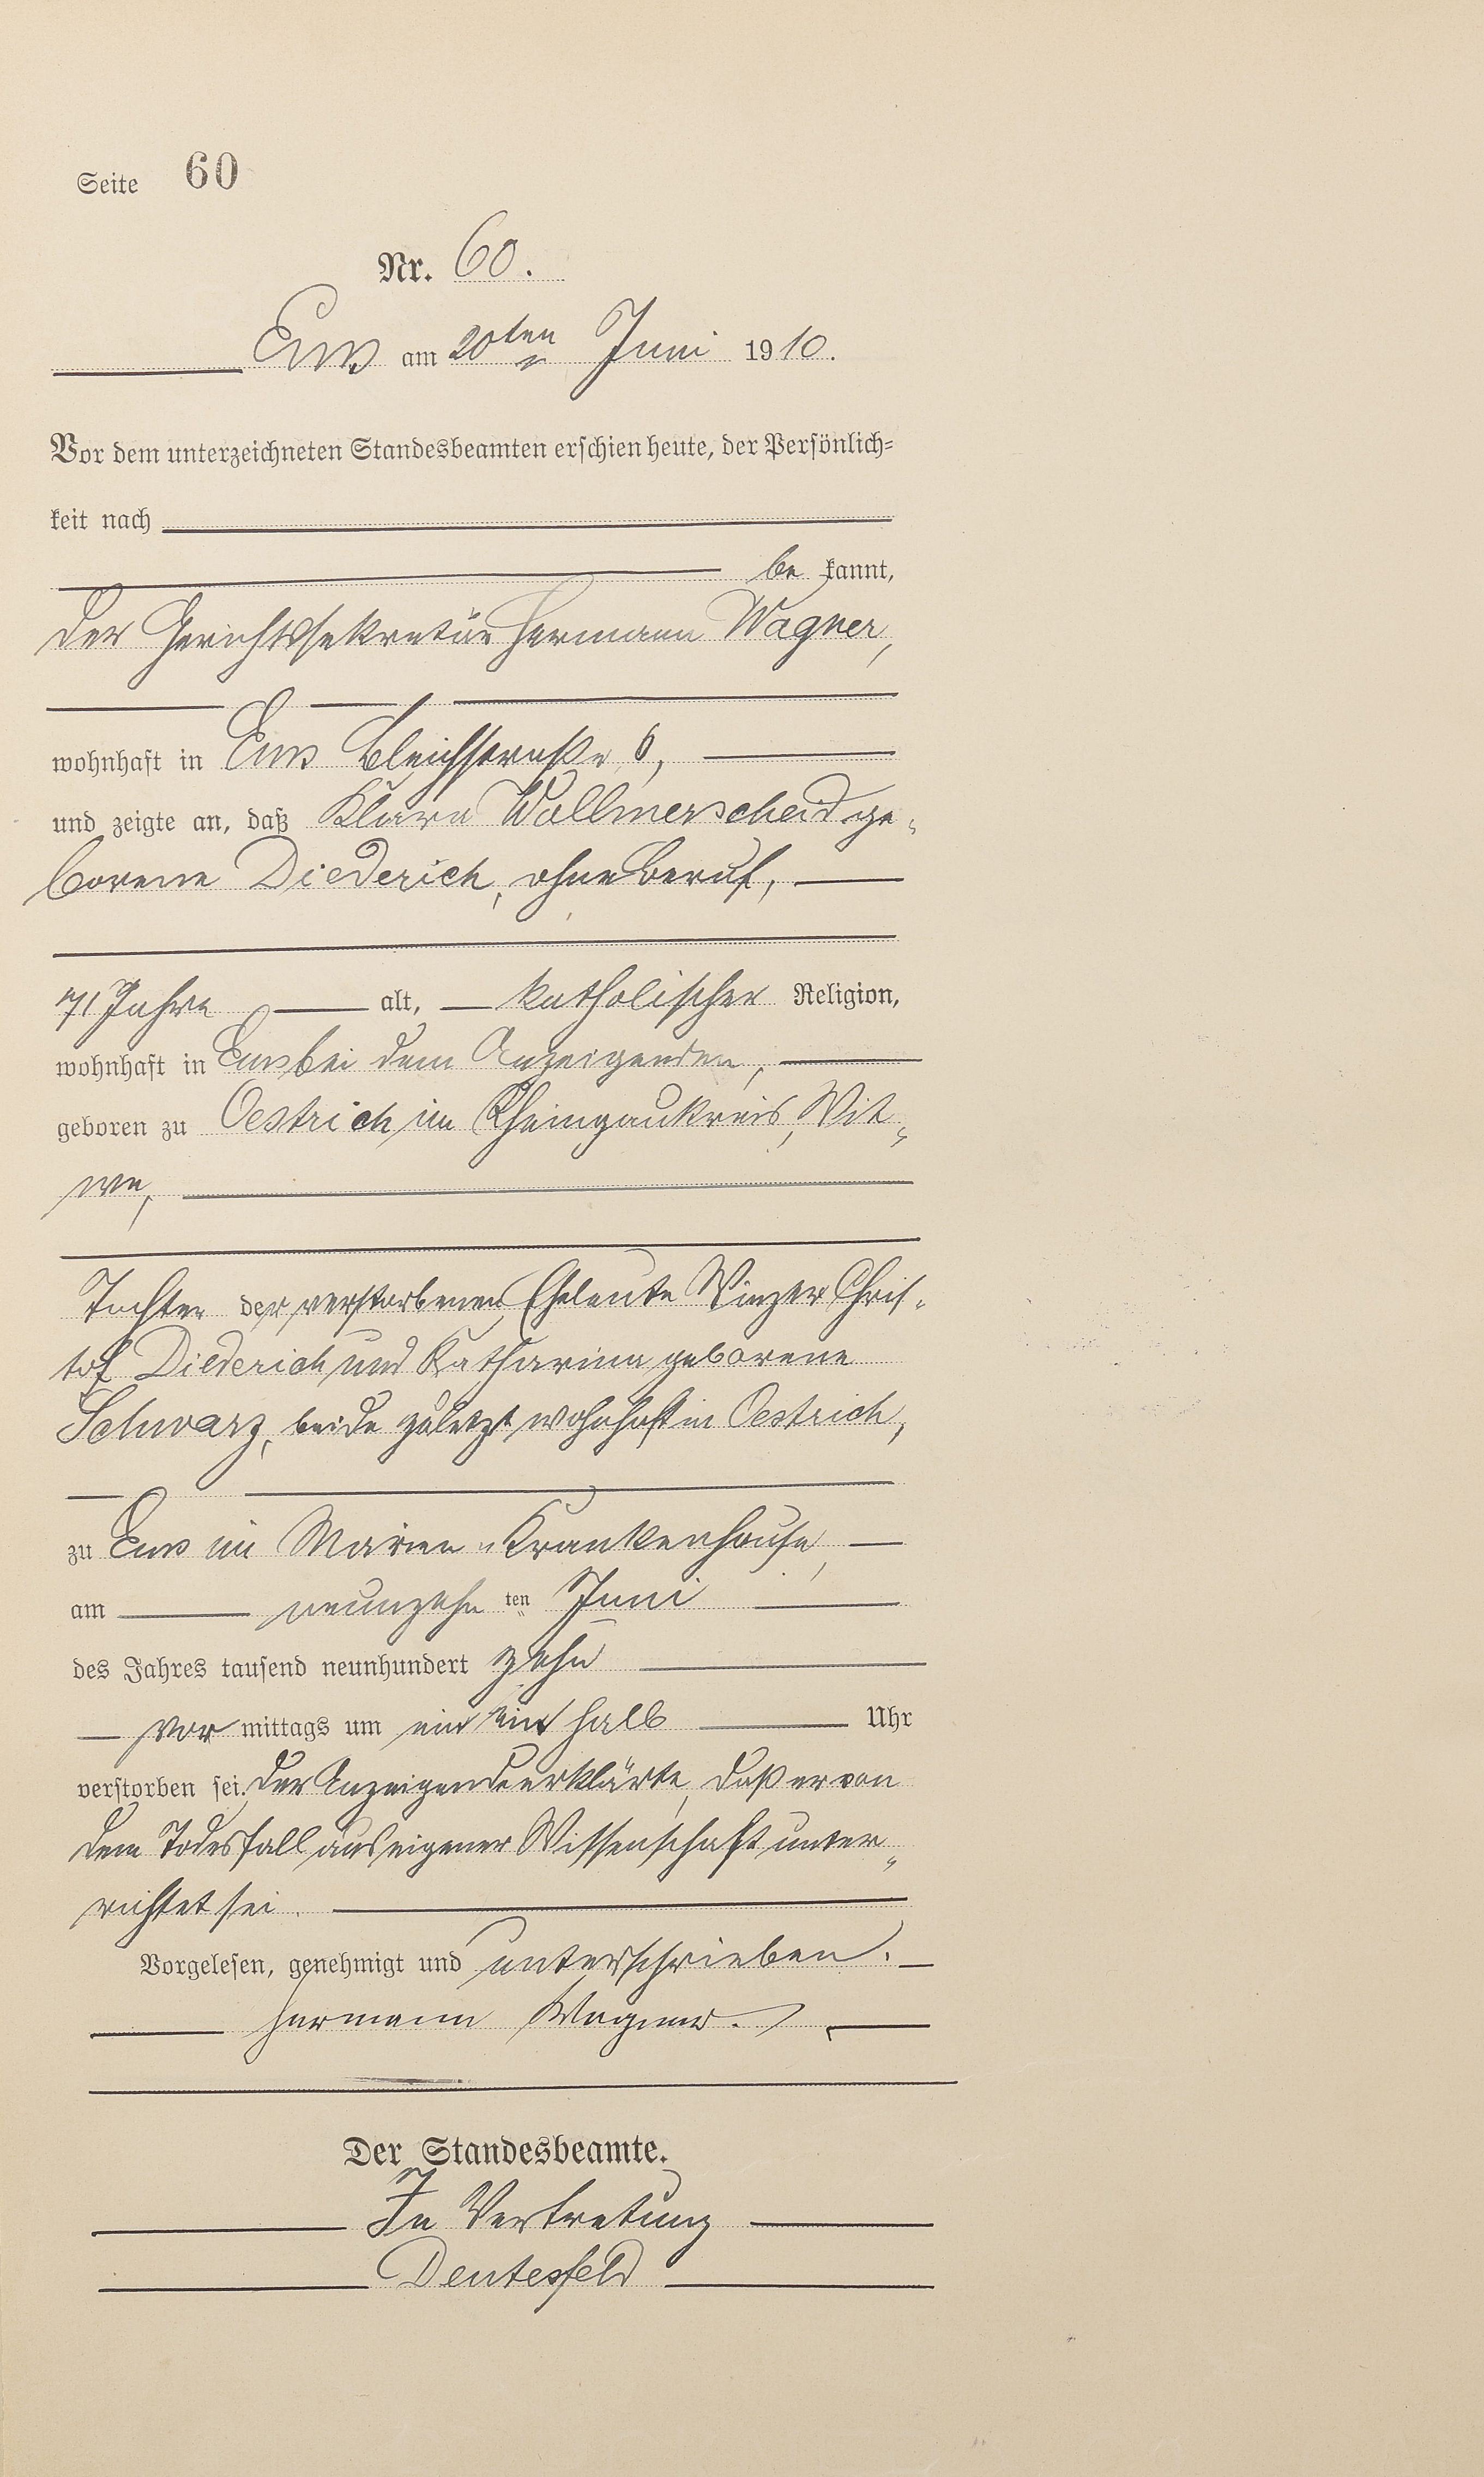 Seite 60
Nr. 60.
Ems am 20ten Juni 1910.
Vor dem unterzeichneten Standesbeamten erschien heute, der Persönlich-
keit nach
be kannt,
der Gerichtssekretär Hermann Wagner,
wohnhaft in Ems Bleichstraße 6,
und zeigte an, daß Klara Wollmerscheid ge-
borene Diederich, ohne Beruf,
71 Jahre alt, katholischer Religion,
wohnhaft in Ems bei dem Anzeigenden,
geboren zu Oestrich im Rheingaukreis, Wit-
we,
Tochter der verstorbenen Eheleute Winzer Chris-
tof Diederich und Katharina geborene
Schwarz, beide zuletzt wohnhaft in Oestrich,
zu Ems im Marien-Krankenhause,
am neunzehn ten Juni
des Jahres tausend neunhundert zehn
vor mittags um ein ein halb Uhr
verstorben sei. Der Anzeigende erklärte, daß er von
dem Todesfall aus eigener Wissenschaft unter-
richtet sei.
Vorgelesen, genehmigt und unterschrieben.
Hermann Wagner.
Der Standesbeamte.
In Vertretung